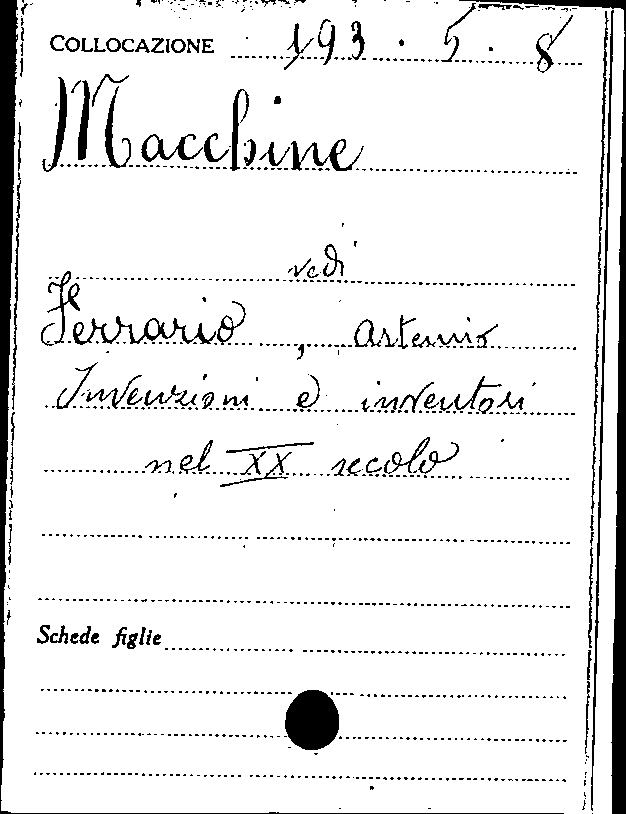 COLLOCAZIONE 193.5.8
Macchine
vedi
Ferrario, Artemio
Invenzioni e inventori
nel XX secolo
Schede figlie